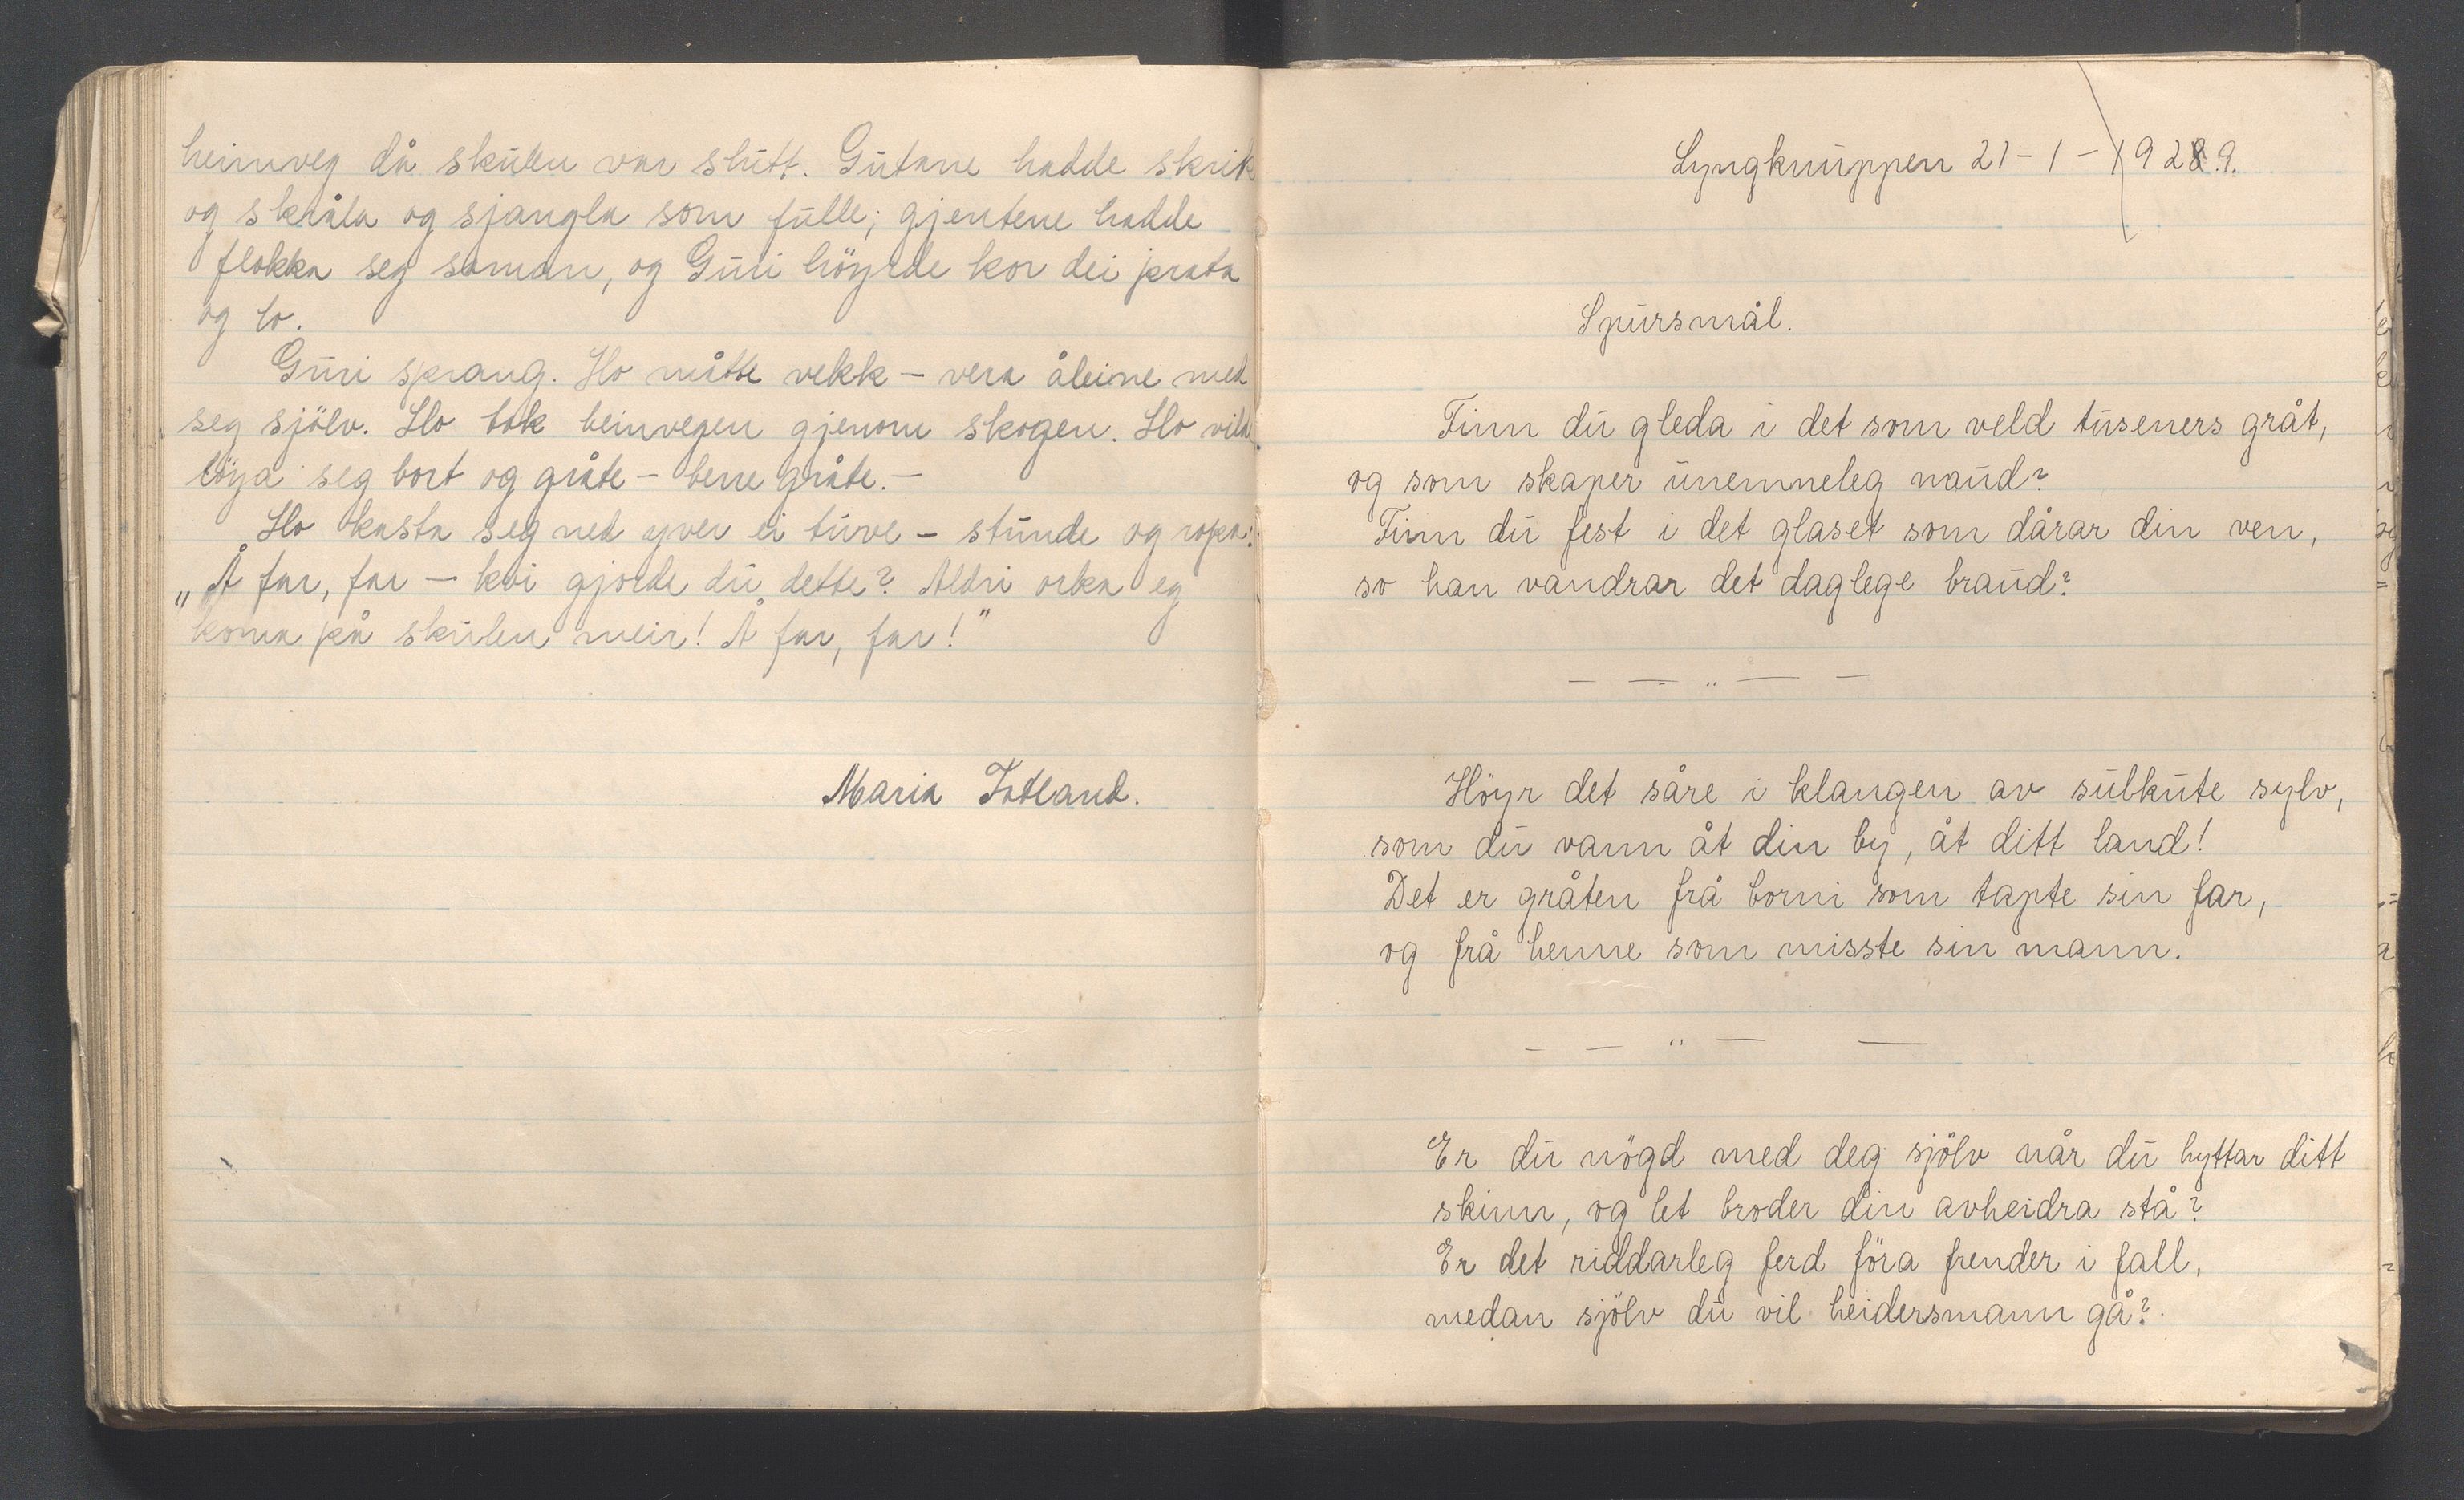 heimveg då skulen var slutt. Gutane hadde skrik
og skråla og sjangla som fulle; gjentene hadde
flokka seg saman, og Guri höyrde kor dei prata
og lo.
Guri sprang. Ho måtte vekk – vera åleine med
seg sjölv. Ho tok beinvegen gjenom skogen. Ho vilde
löya seg bort og gråte – berre gråte. –
Ho kasta seg ned yver ei tuve – stunde og ropa:
„Å far, far – kvi gjorde du dette? Aldri orka eg
koma på skulen meir! Å far, far!"
Maria Tatland.
Lyngknuppen 21 – 1 – 1929.
Spursmål.
Finn du gleda i det som veld tuseners gråt,
og som skaper unemneleg naud?
Finn du fest i det glaset som dårar din ven,
so han vandrar det daglege braud?
— — „ — —
Höyr det såre i klangen av sulkute sylv,
som du vann åt din by, åt ditt land!
Det er gråten frå borni som tapte sin far,
og frå henne som misste sin mann.
— — „ — —
Er du nögd med deg sjölv når du hyttar ditt
skinn, og let broder din avheidra stå?
Er det riddarleg ferd föra frender i fall,
medan sjölv du vil heidersmann gå?